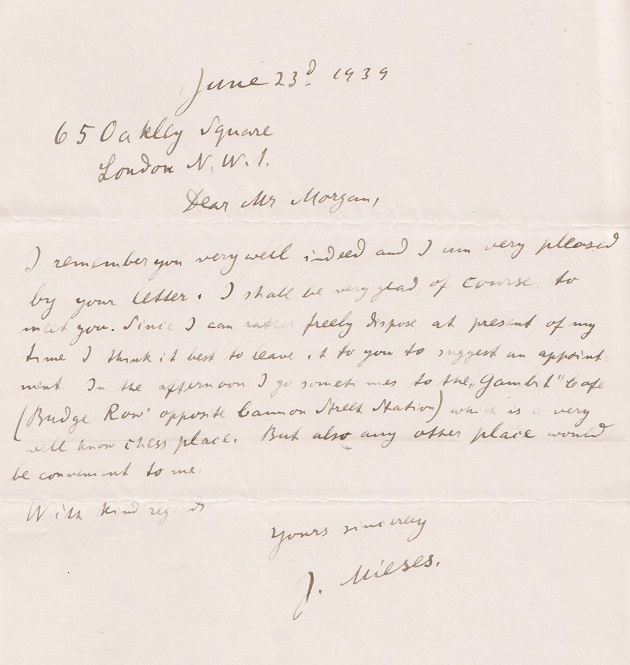 June 23d. 1939
65 Oakley Square
London N.W.1.
Dear Mr Morgan,
I remember you very well indeed and I am very pleased
by your letter. I shall be very glad, of course, to
meet you. Since I can rather freely dispose at present of my
time I think it best to leave it to you to suggest an appoint-
ment. In the afternoon I go sometimes to the „Gambit" Cafe
(Budge Row opposite Cannon Street Station) which is a very
well know chess place. But also any other place would
be convenient to me.
With kind regards
Yours sincerely
J. Mieses.